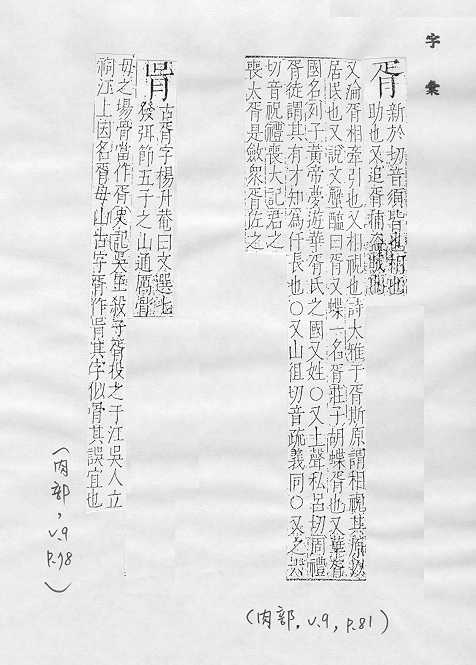 字彙
胥
新於切音須皆也相也
助也又追胥捕盗賊也
又淪胥相牽引也又相視也詩大雅于胥斯原謂相視其原以
居民也又說文蟹醢曰胥又蝶一名胥莊子胡蝶胥也又華胥
國名列子黃帝夢遊華胥氏之國又姓〇又上聲私呂切周禮
胥徒謂其有才知為什長也〇又山徂切音疏義同〇又之
切音祝禮喪大記君之
喪大胥是斂衆胥佐之
(肉部, v.9, p.81)
古胥字楊升菴曰文選七
發弭節五子之山通厲骨
母之場骨當作胥史記吳王殺子胥投之于江吳人立
祠江上因名胥母山古字胥作其字似骨其誤宜也
(肉部, v.9
p.98)